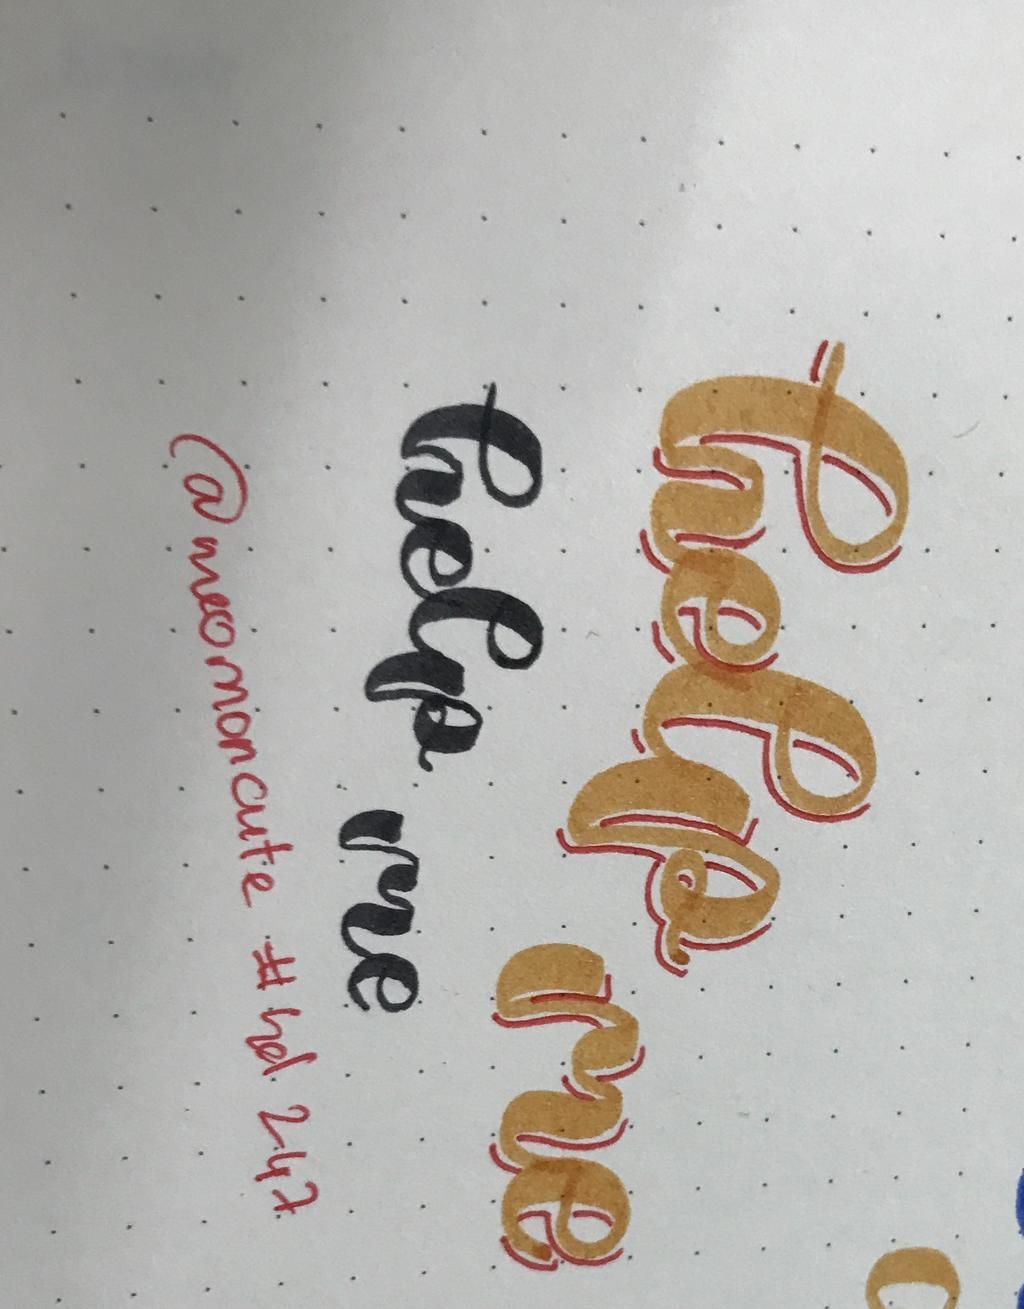 help me
help me
@meomoncute #hd 247